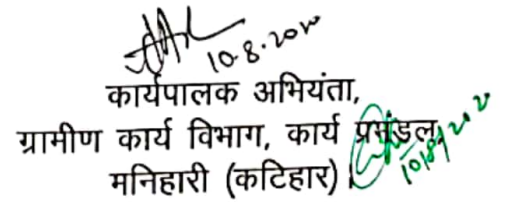 10.8.2020
कार्यपालक अभियंता,
ग्रामीण कार्य विभाग, कार्य प्रमंडल,
मनिहारी (कटिहार)।